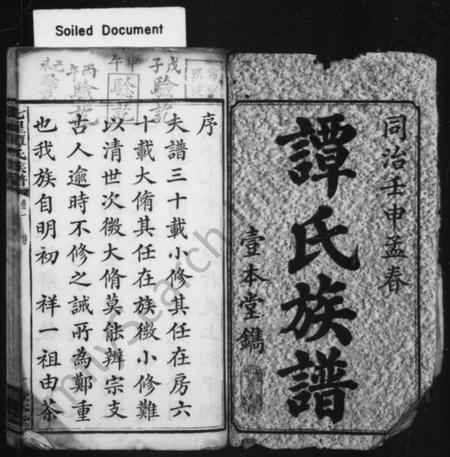 Soiled Document
同治壬申孟春
譚氏族譜
壹本堂鐫
序
夫譜三十載小修其任在房六
十載大脩其任在族微小修難
以清世次微大脩莫能辨宗支
古人逾時不修之誡所為鄭重
也我族自明初 祥一祖由茶
戊子
驗記
午
驗記
丙午
驗記